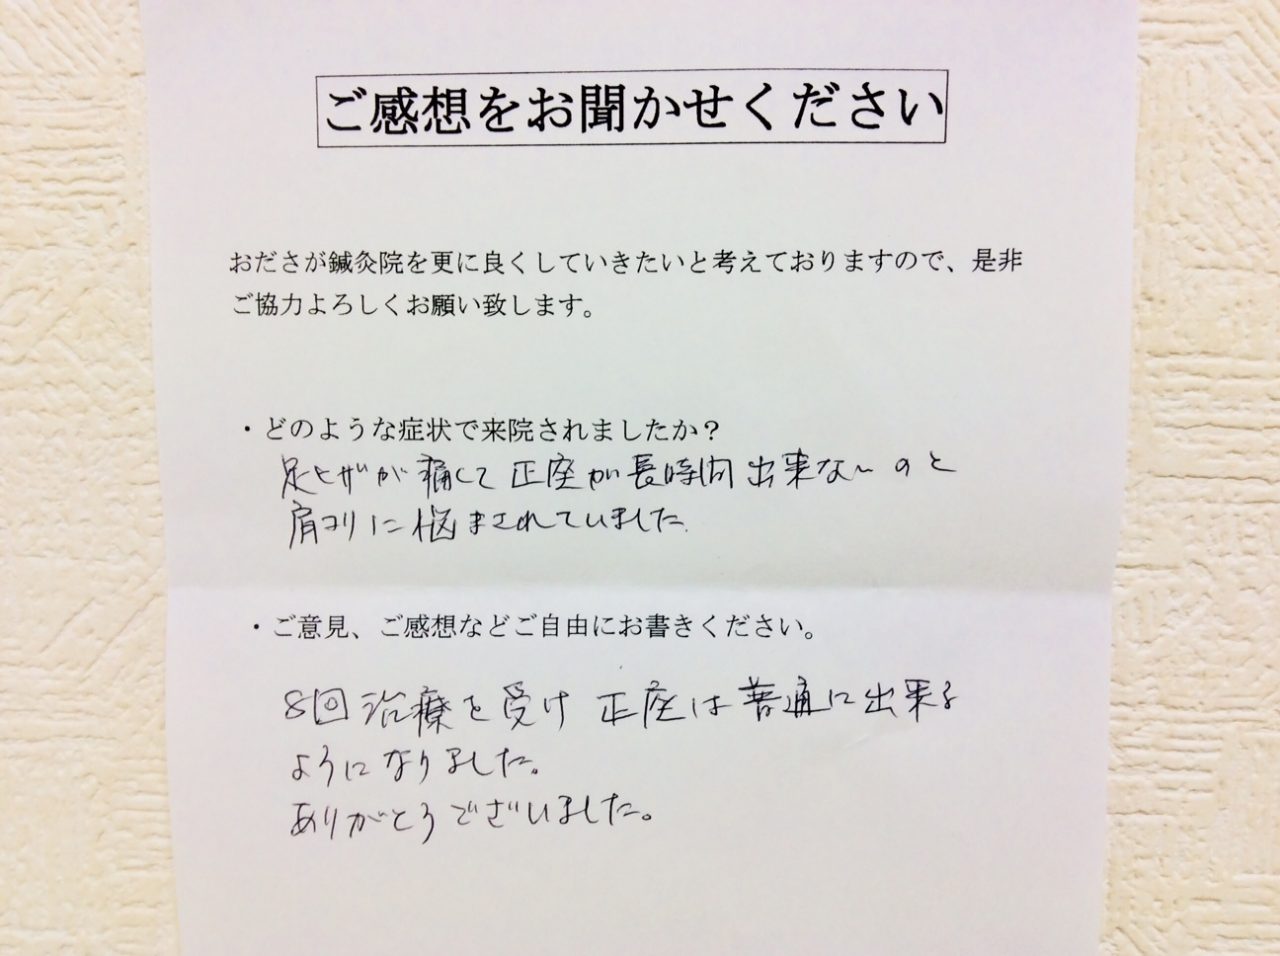 ご感想をお聞かせください
おださが鍼灸院を更に良くしていきたいと考えておりますので、是非
ご協力よろしくお願い致します。
・どのような症状で来院されましたか？
足ヒザが痛くて正座が長時間出来ないのと
肩コリに悩まされていました。
・ご意見、ご感想などご自由にお書きください。
8回治療を受け正座は普通に出来る
ようになりました。
ありがとうございました。